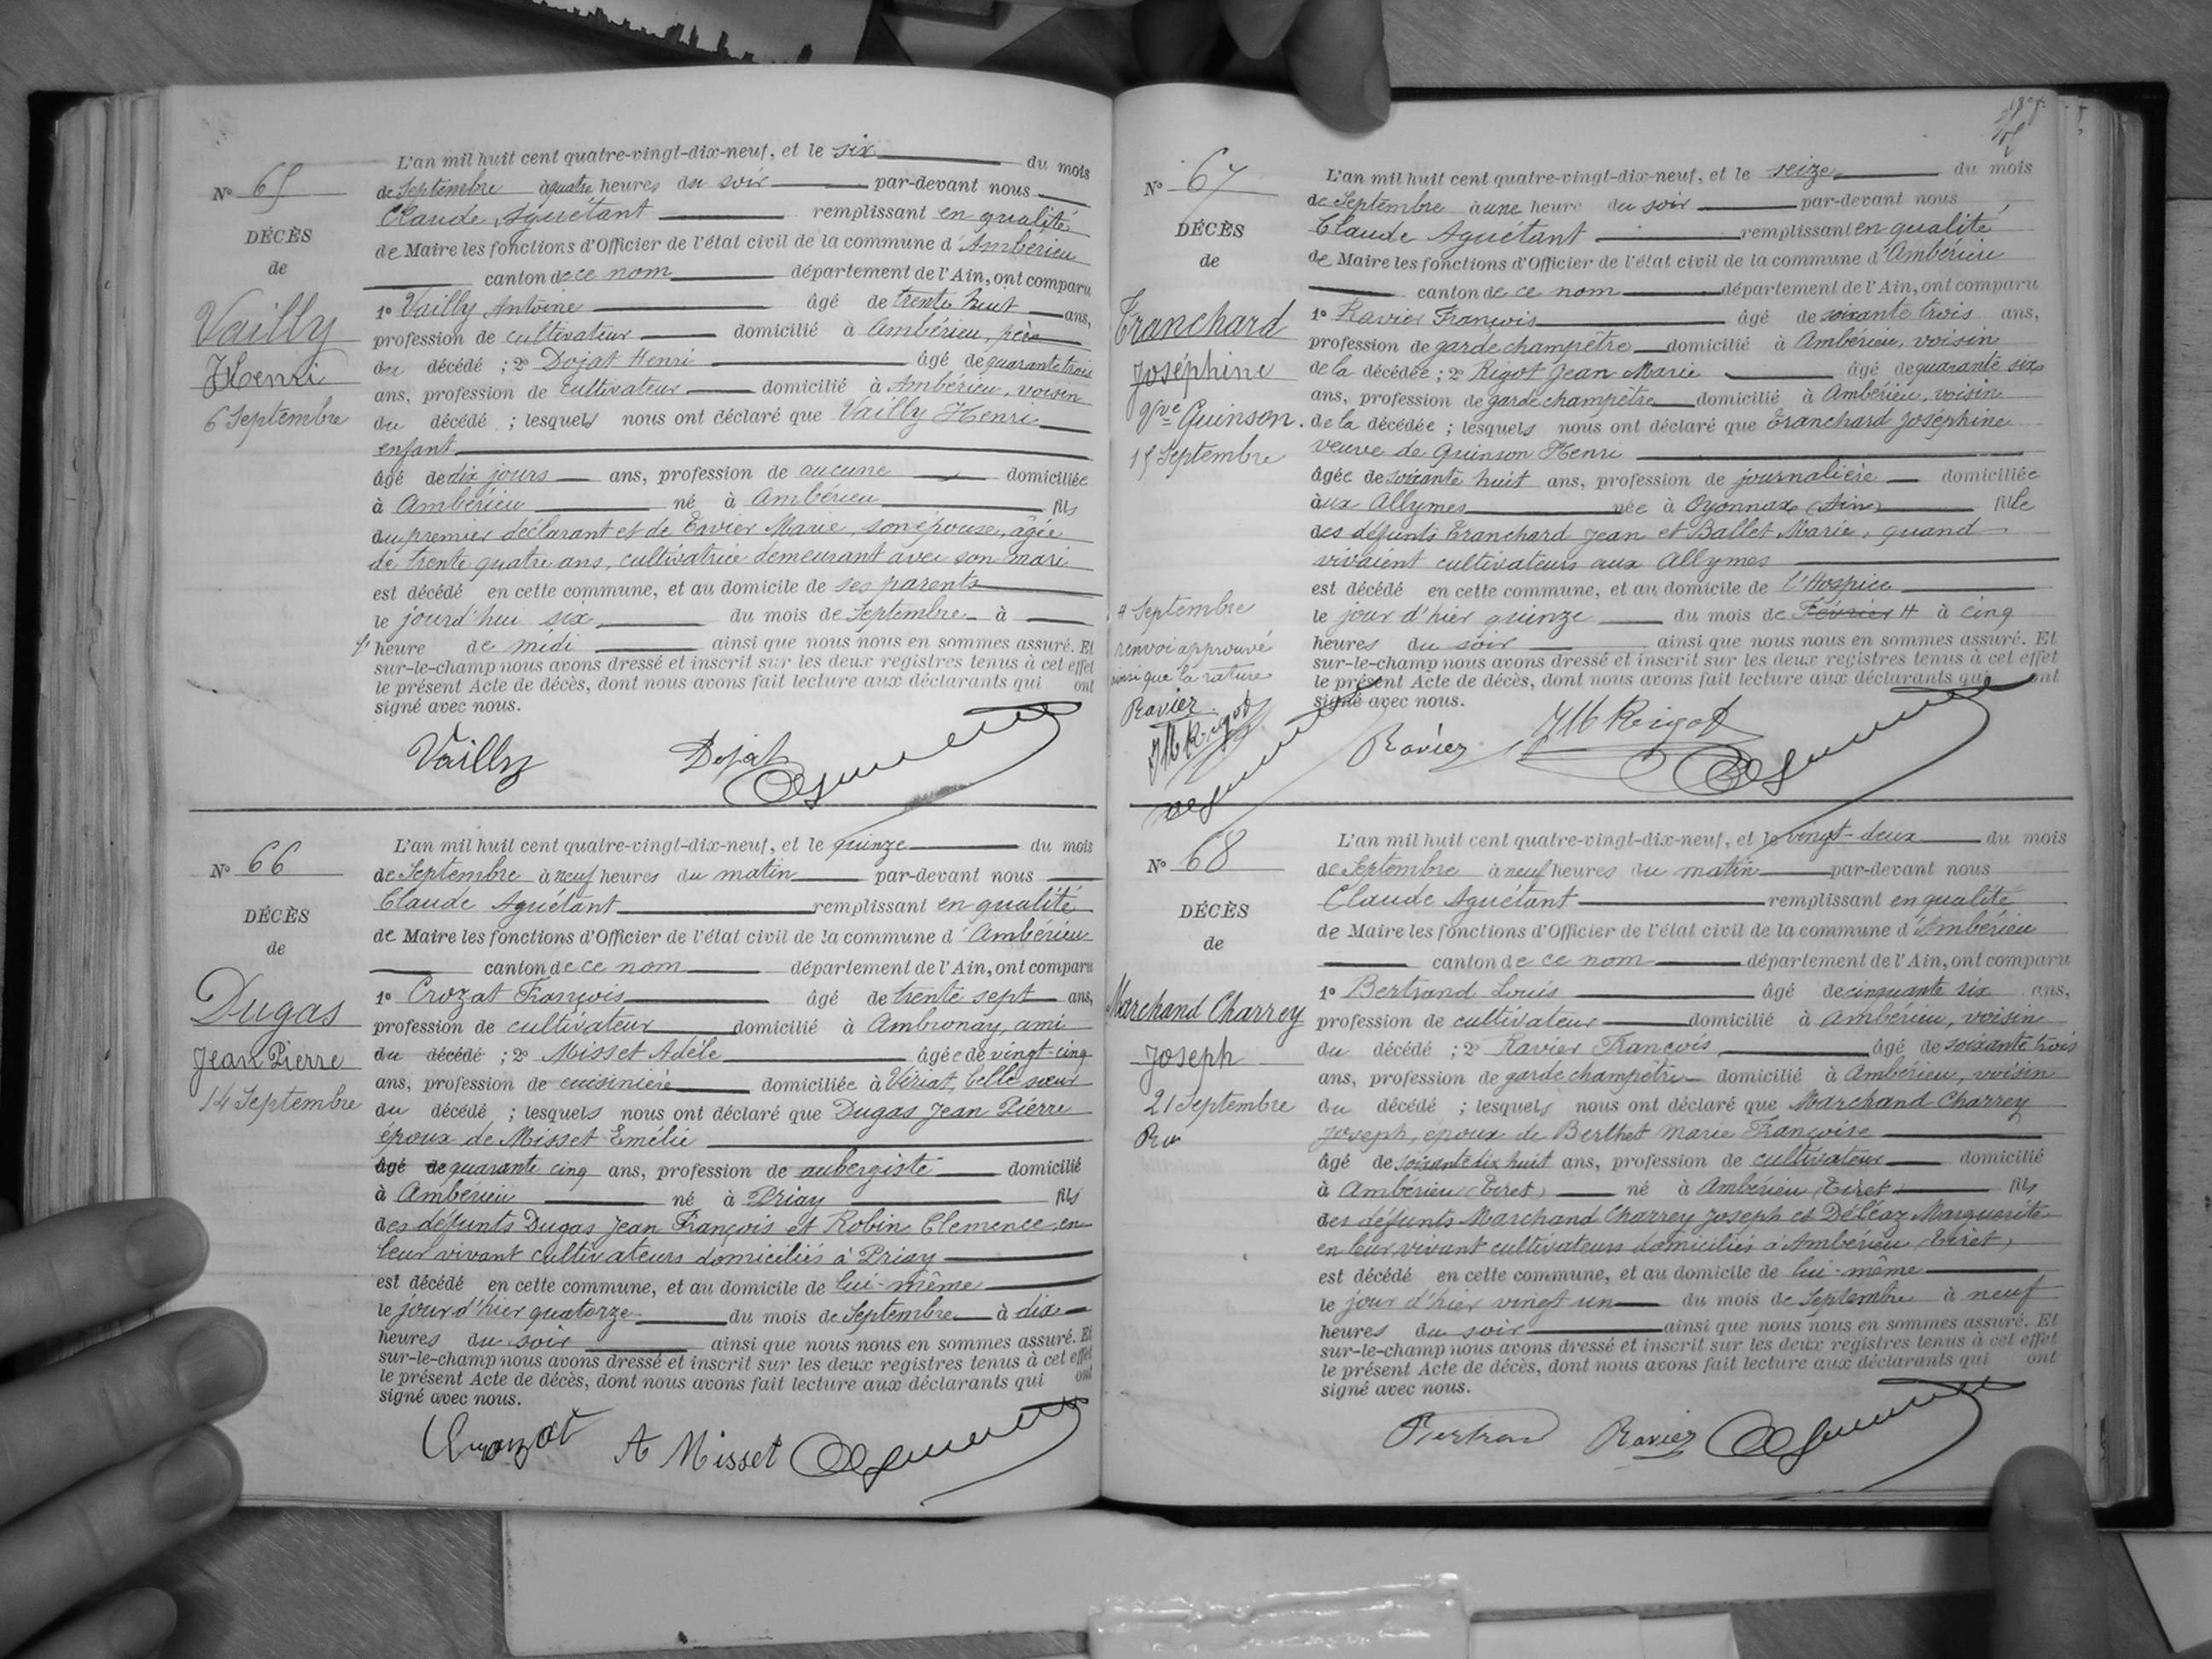 N° 65
DÉCÈS
de
Vailly
Henri
6 Septembre
L'an mil huit cent quatre-vingt-dix-neuf, et le six du mois
de Septembre à quatre heures du soir par-devant nous
Claude Aguétant remplissant en qualité
de Maire les fonctions d'Officier de l'état civil de la commune d'Ambérieu
canton de ce nom département de l'Ain, ont comparu
1° Vailly Antoine âgé de trente huit ans,
profession de cultivateur domicilié à Ambérieu, père
du décédé ; 2° Dojat Henri âgé de quarante trois
ans, profession de cultivateur domicilié à Ambérieu, voisin
du décédé ; lesquels nous ont déclaré que Vailly Henri
enfant
âgé de dix jours ans, profession de aucune domiciliée
à Ambérieu né à Ambérieu fils
du premier déclarant et de Marie, son épouse, âgée
de trente quatre ans, cultivatrice demeurant avec son mari
est décédé en cette commune, et au domicile de ses parents
le jourd'hui six du mois de Septembre à
heure de midi ainsi que nous nous en sommes assuré. Et
sur-le-champ nous avons dressé et inscrit sur les deux registres tenus à cet effet
le présent Acte de décès, dont nous avons fait lecture aux déclarants qui ont
signé avec nous.
Vailly Dojat
N° 66
DÉCÈS
de
Dugas
Jean Pierre
14 Septembre
L'an mil huit cent quatre-vingt-dix-neuf, et le quinze du mois
de Septembre à neuf heures du matin par-devant nous
Claude Aguétant remplissant en qualité
de Maire les fonctions d'Officier de l'état civil de la commune d'Ambérieu
canton de ce nom département de l'Ain, ont comparu
1° Crozat François âgé de trente sept ans,
profession de cultivateur domicilié à Ambronay, ami
du décédé ; 2° Misset Adèle âgée de vingt-cinq
ans, profession de cuisinière domiciliée à Viriat, belle sœur
du décédé ; lesquels nous ont déclaré que Dugas Jean Pierre
époux de Misset Emélie
âgé de quarante cinq ans, profession de aubergiste domicilié
à Ambérieu né à Priay fils
des défunts Dugas Jean François et Robin Clemence, en
leur vivant cultivateurs domiciliés à Priay
est décédé en cette commune, et au domicile de lui-même
le jour d'hier quatorze du mois de Septembre à dix
heures du soir ainsi que nous nous en sommes assuré. Et
sur-le-champ nous avons dressé et inscrit sur les deux registres tenus à cet effet
le présent Acte de décès, dont nous avons fait lecture aux déclarants qui ont
signé avec nous.
Crozat A Misset
N° 67
DÉCÈS
de
Tranchard
Joséphine
Vve Guinson.
15 Septembre
L'an mil huit cent quatre-vingt-dix-neuf, et le seize du mois
de Septembre à une heure du soir par-devant nous
Claude Aguétant remplissant en qualité
de Maire les fonctions d'Officier de l'état civil de la commune d'Ambérieu
canton de ce nom département de l'Ain, ont comparu
1° Ravier François âgé de soixante trois ans,
profession de garde champêtre domicilié à Ambérieu, voisin
de la décédée ; 2° Rigot Jean Marie âgé de quarante six
ans, profession de garde champêtre domicilié à Ambérieu, voisin
de la décédée ; lesquels nous ont déclaré que Tranchard Joséphine
veuve de Guinson Henri
âgée de soixante huit ans, profession de journalière domiciliée
aux Allymes née à Oyonnax (Ain) fille
des défunts Tranchard Jean et Ballet Marie, quand
vivaient cultivateurs aux Allymes
est décédé en cette commune, et au domicile de l'Hospice
le jour d'hier quinze du mois de Février # à cinq
heures du soir ainsi que nous nous en sommes assuré. Et
sur-le-champ nous avons dressé et inscrit sur les deux registres tenus à cet effet
le présent Acte de décès, dont nous avons fait lecture aux déclarants qui ont
signé avec nous.
# Septembre
renvoi approuvé
ainsi que la rature
Ravier
JM Rigot
Ravier JM Rigot
N° 68
DÉCÈS
de
Marchand Charrey
Joseph
21 Septembre
L'an mil huit cent quatre-vingt-dix-neuf, et le vingt-deux du mois
de Septembre à neuf heures du matin par-devant nous
Claude Aguétant remplissant en qualité
de Maire les fonctions d'Officier de l'état civil de la commune d'Ambérieu
canton de ce nom département de l'Ain, ont comparu
1° Bertrand Louis âgé de cinquante six ans,
profession de cultivateur domicilié à Ambérieu, voisin
du décédé ; 2° Ravier François âgé de soixante trois
ans, profession de garde champêtre domicilié à Ambérieu, voisin
du décédé ; lesquels nous ont déclaré que Marchand Charrey
Joseph, époux de Berthet Marie Françoise
âgé de soixante dix huit ans, profession de cultivateur domicilié
à Ambérieu (Tiret) né à Ambérieu (Tiret) fils
des défunts Marchand Charrey Joseph et Déléaz Marguerite
en leur vivant cultivateurs domiciliés à Ambérieu (Tiret)
est décédé en cette commune, et au domicile de lui-même
le jour d'hier vingt un du mois de Septembre à neuf
heures du soir ainsi que nous nous en sommes assuré. Et
sur-le-champ nous avons dressé et inscrit sur les deux registres tenus à cet effet
le présent Acte de décès, dont nous avons fait lecture aux déclarants qui ont
signé avec nous.
Bertrand Ravier